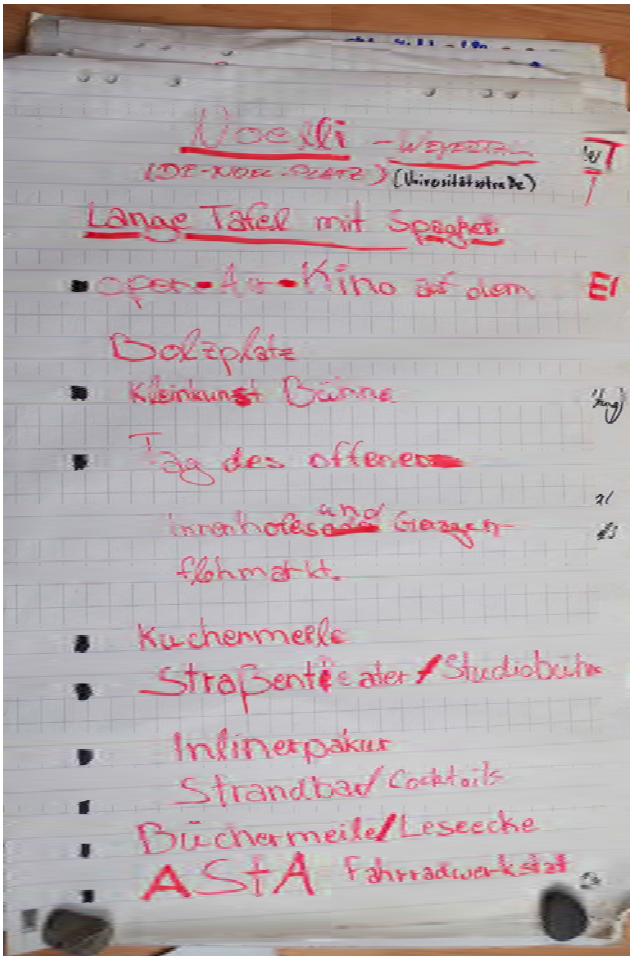 Noelli - WEYERTAL
(DE-NOEL-PLATZ) (Universitätsstraße)
Lange Tafel mit
Open-Air-Kino auf dem
Bolzplatz
Kleinkunst Bühne
Tag des offenen
Innenhofes und Garagen-
flohmarkt.
Kuchenmeile
Straßentheater/Studiobühn
Inlinerpakur
Strandbar/Cocktails
Büchermeile/Leseecke
AStA Fahrradwerkstat